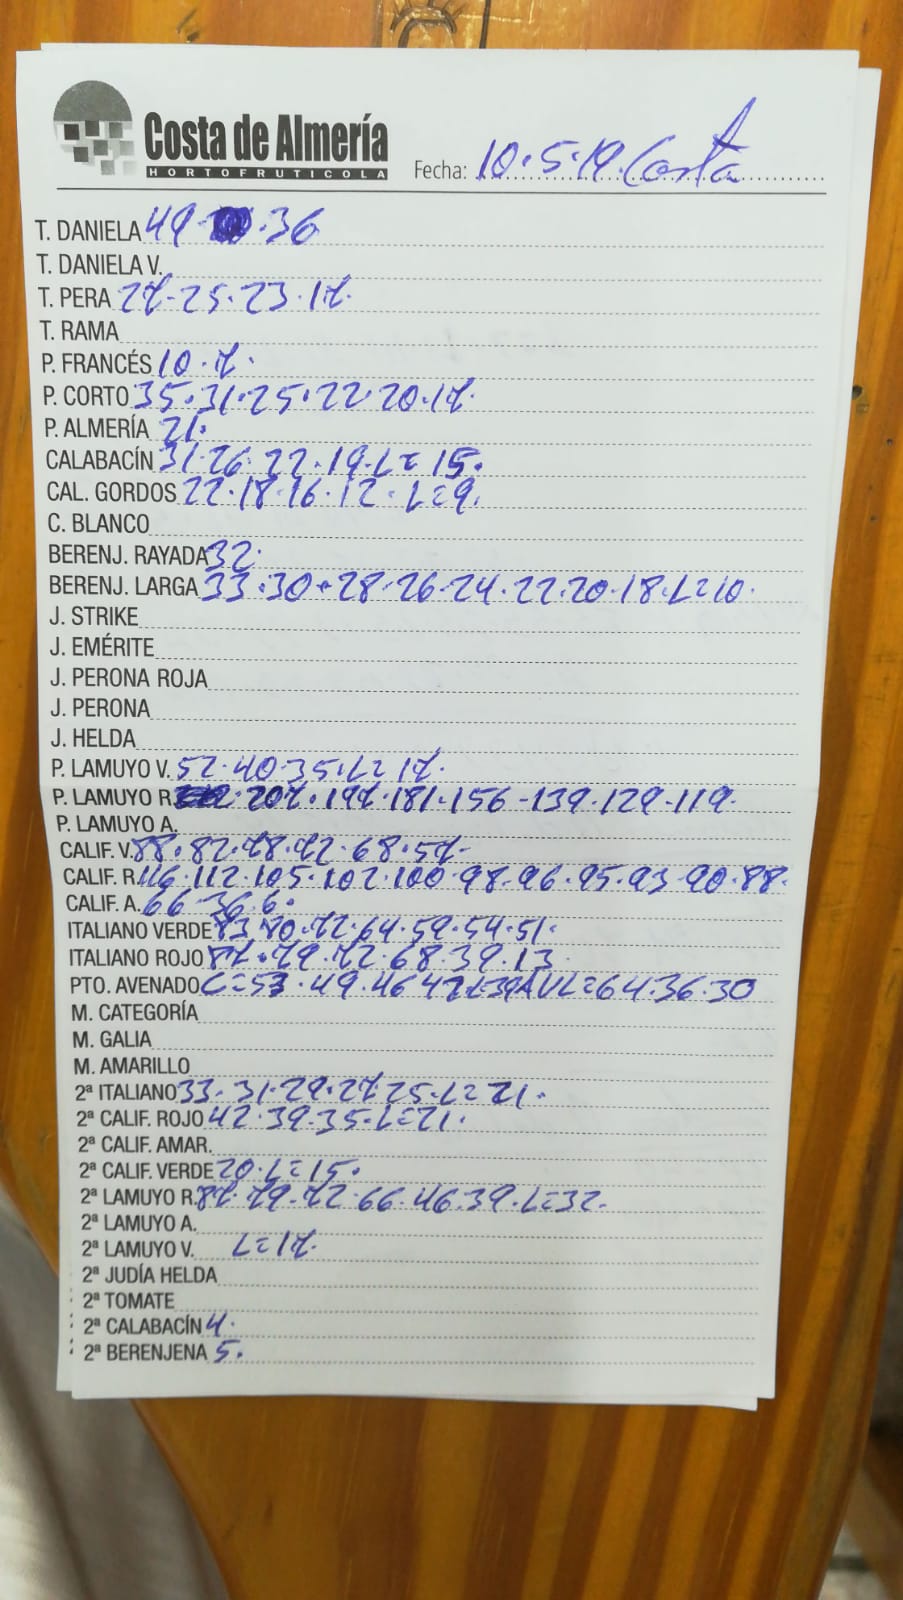 Costa de Almería
HORTOFRUTICOLA
Fecha: 10.5.19. Costa
T. DANIELA 49 . 36
T. DANIELA V.
T. PERA 27-25.23.17.
T. RAMA
P. FRANCÉS 10.7.
P. CORTO 35.31.25.22.20.17.
P. ALMERÍA 21.
CALABACÍN 31.26.22.19.L=15.
CAL. GORDOS 22.18.16.12.L=9.
C. BLANCO
BERENJ. RAYADA 32.
BERENJ. LARGA 33.30.28.26.24.22.20.18.L=10.
J. STRIKE
J. EMÉRITE
J. PERONA ROJA
J. PERONA
J. HELDA
P. LAMUYO V. 52.40.35.L=17.
P. LAMUYO R. 207.197.181.156-139.129-119.
P. LAMUYO A.
CALIF. V. 88.82.78.72.68.57.
CALIF. R. 116.112.105.102.100.98.96.95.93.90.88.
CALIF. A. 66.36.6.
ITALIANO VERDE 83.80.72.64.59.54.51.
ITALIANO ROJO 87.79.72.68.39.13.
PTO. AVENADO C=53.49.46 42 L=39 AVL=64.36.30
M. CATEGORÍA
M. GALIA
M. AMARILLO
2ª ITALIANO 33.31.29.27.25.L=21.
2ª CALIF. ROJO 42.39.35.L=21.
2ª CALIF. AMAR.
2ª CALIF. VERDE 20.L=15.
2ª LAMUYO R. 87.79.72.66.46.39.L=32.
2ª LAMUYO A.
2ª LAMUYO V. L=17.
2ª JUDÍA HELDA
2ª TOMATE
2ª CALABACÍN 4.
2ª BERENJENA 5.